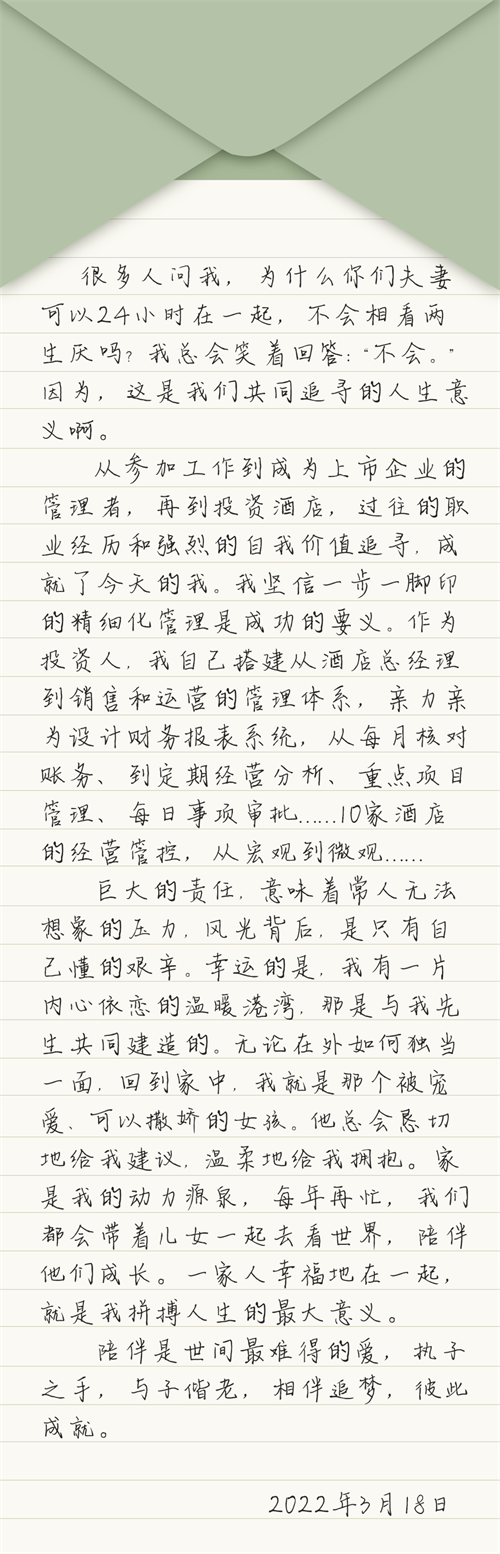 很多人问我，为什么你们夫妻
可以24小时在一起，不会相看两
生厌吗？我总会笑着回答：“不会。”
因为，这是我们共同追寻的人生意
义啊。
从参加工作到成为上市企业的
管理者，再到投资酒店，过往的职
业经历和强烈的自我价值追寻，成
就了今天的我。我坚信一步一脚印
的精细化管理是成功的要义。作为
投资人，我自己搭建从酒店总经理
到销售和运营的管理体系，亲力亲
为设计财务报表系统，从每月核对
账务、到定期经营分析、重点项目
管理、每日事项审批……10家酒店
的经营管控，从宏观到微观……
巨大的责任，意味着常人无法
想象的压力，风光背后，是只有自
己懂的艰辛。幸运的是，我有一片
内心依恋的温暖港湾，那是与我先
生共同建造的。无论在外如何独当
一面，回到家中，我就是那个被宠
爱、可以撒娇的女孩。他总会恳切
地给我建议，温柔地给我拥抱。家
是我的动力源泉，每年再忙，我们
都会带着儿女一起去看世界，陪伴
他们成长。一家人幸福地在一起，
就是我拼搏人生的最大意义。
陪伴是世间最难得的爱，执子
之手，与子偕老，相伴追梦，彼此
成就。
2022年3月18日